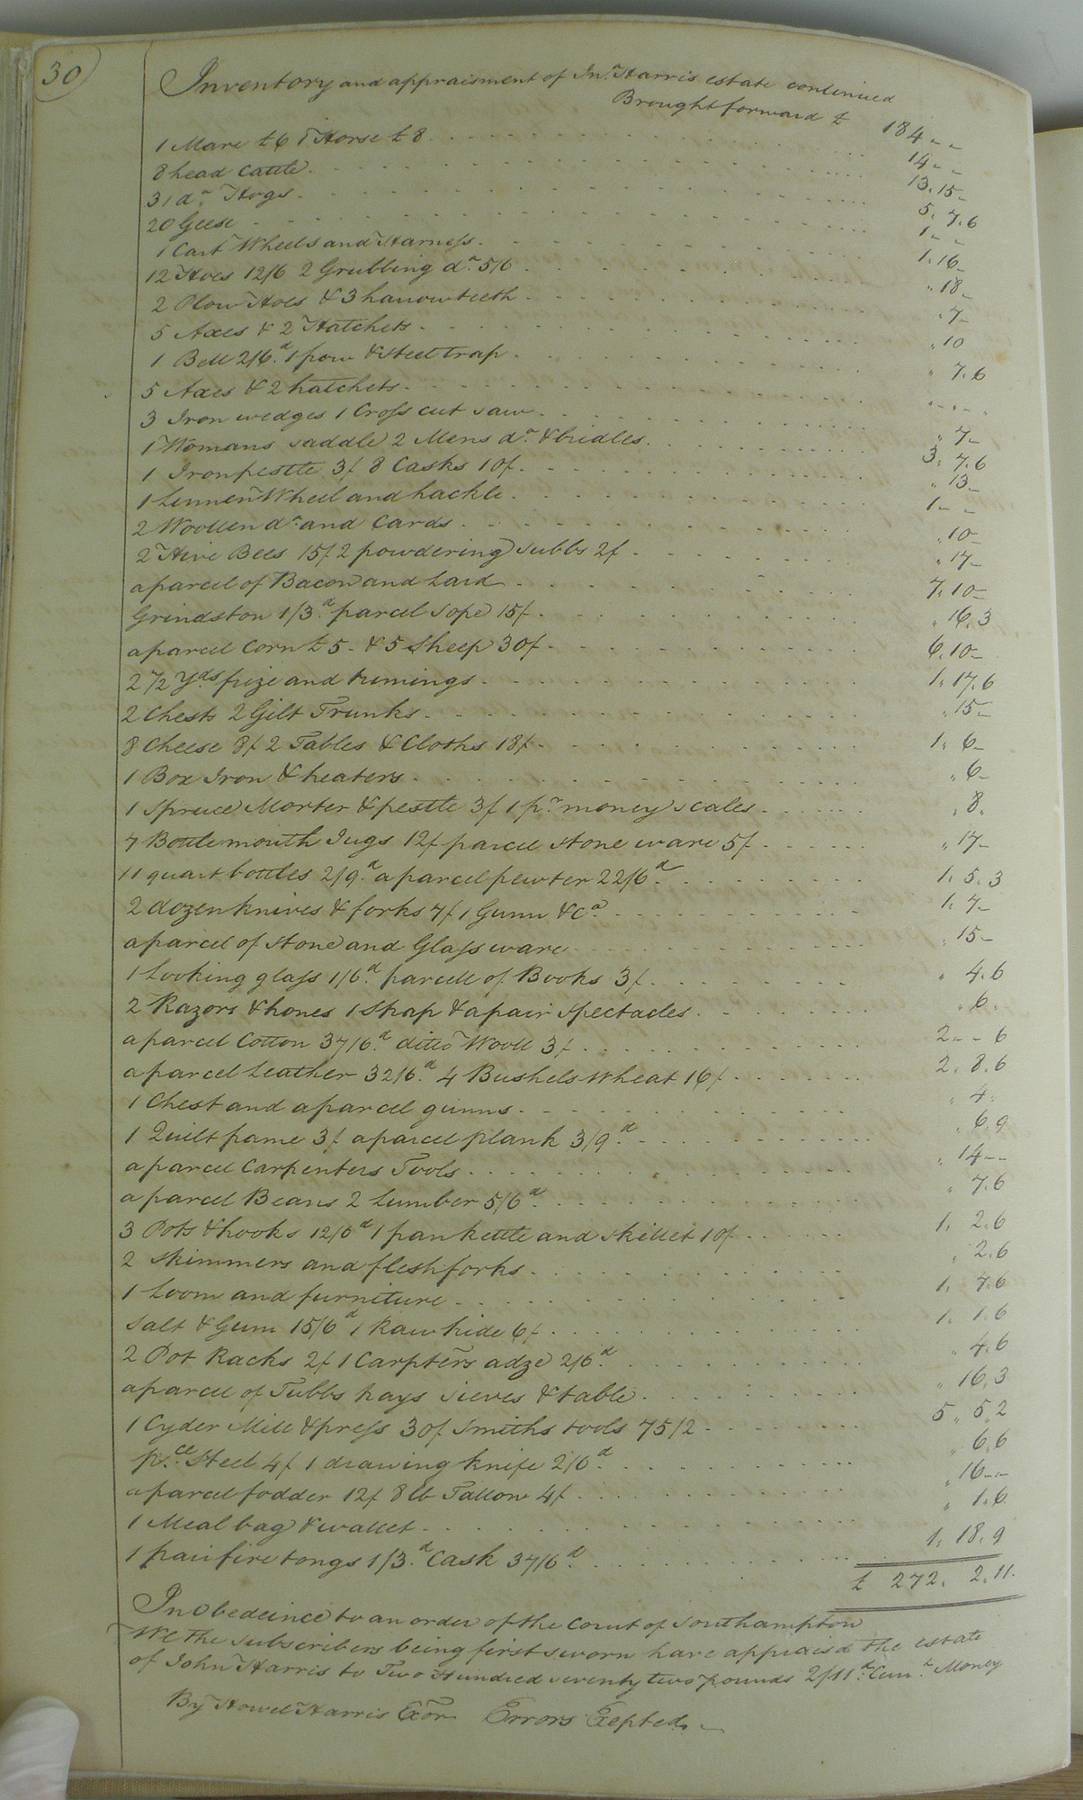 30
Inventory and appraisment of Jnº Harris estate continued
Brought forward £ 184 - -
1 Mare £6 1 Horse £8 14 - -
8 head Cattle 13. 15 -
31 dº Hogs 5. 7. 6
20 Geese 1 - -
1 Cart Wheels and Harness 1. 16 -
12 Hoes 12/6 2 Grubbing dº 5/6 " 18 -
2 Plow Hoes & 3 harrow teeth " 7 -
5 Axes & 2 Hatchets " 10
1 Bell 2/6.d 1 pow & steel trap " 7. 6
5 Axes & 2 hatchets " - " - .
3 Iron wedges 1 Cross cut saw " 7 -
1 Womans saddle 2 Mens dº & bridles 3. 7. 6
1 Iron pestle 3/ 8 Casks 10/ " 13 -
1 Linnen Wheel and hackle 1 - -
2 Woollen dº and Cards " 10 -
2 Hive Bees 15/ 2 powdering Tubbs 2/ " 17 -
a parcel of Bacon and Lard 7. 10 -
Grindston 1/3.d parcel Sope 15/ " 16. 3
a parcel Corn £5 - & 5 Sheep 30/ 6. 10 -
2 1/2 Yds frize and trimings 1. 17. 6
2 Chests 2 Gilt Trunks " 15 -
8 Cheese 8/ 2 Tables & Cloths 18/ 1. 6 -
1 Box Iron & heaters " 6 -
1 Spruce Morter & pestle 3/ 1 pr money scales " 8.
7 Bottle mouth Jugs 12/ parcel Stone ware 5/ " 17 -
11 quart bottles 2/9.d a parcel pewter 22/6.d 1. 5. 3
2 dozen knives & forks 7/ 1 Gunn &c.a 1. 7 -
a parcel of Stone and Glass ware " 15 -
1 Looking glass 1/6.d parcell of Books 3/ " 4. 6
2 Razors & hones 1 Strap & a pair Spectacles " 6 .
a parcel Cotton 37/6.d ditto Wooll 3/ 2 - - 6
a parcel Leather 32/6.d 4 Bushels Wheat 16/ 2. 8. 6
1 Chest and a parcel gunns " 4 .
1 Quilt frame 3/ a parcel plank 3/9.d " 6. 9
a parcel Carpenters Tools " 14 - -
a parcel Beans 2 Lumber 5/6d " 7. 6
3 Pots & hooks 12/6d 1 pan kettle and skillet 10/ 1. 2. 6
2 Skimmers and fleshforks " 2. 6
1 Loom and furniture 1. 7. 6
Salt & Gum 15/6d 1 Raw hide 6/ 1. 1. 6
2 Pot Racks 2/ 1 Carpters adze 2/6.d " 4. 6
a parcel of Tubbs trays sieves & table " 16. 3
1 Cyder Mill & press 30/ Smiths tools 75/2 5. 5. 2
ps.ce Steel 4/ 1 drawing knife 2/6.d " 6. 6
a parcel fodder 12/ 8 lb Tallow 4/ " 16 - -
1 Meal bag & wallet " 1. 6
1 pair fire tongs 1/3.d Cask 37/6d 1. 18. 9
£ 272. 2. 11.
In obedeince to an order of the Court of Southampton
We the Subscribers being first sworn have appraisd the estate
of John Harris to Two Hundred seventy two pounds 2/11.d Curr.t Money
By Howel Harris Exor Errors Exepted. -